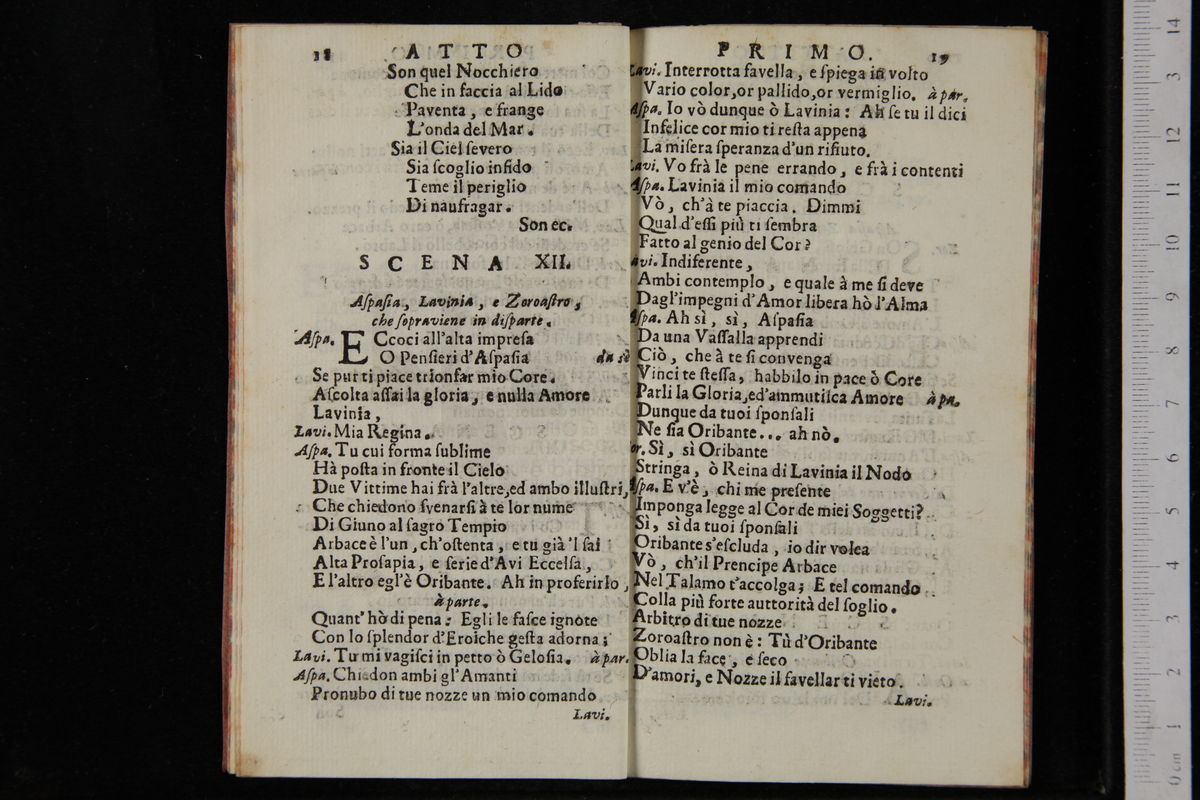 18 ATTO
Son quel Nocchiero
Che in faccia al Lido
Paventa, e frange
L'onda del Mar.
Sia il Ciel ſevero
Sia ſcoglio infido
Teme il periglio
Di naufragar.
Son ec.
SCENA XII.
Aſpaſia, Lavinia, e Zoroaſtro,
che ſopraviene in diſparte.
Aſpa. ECcoci all'alta impreſa
O Penſieri d'Aſpaſia da sè
Se pur ti piace trionfar mio Core.
Aſcolta aſſai la gloria, e nulla Amore
Lavinia,
Lavi. Mia Regina.
Aſpa. Tu cui forma ſublime
Hà poſta in fronte il Cielo
Due Vittime hai frà l'altre, ed ambo illuſtri,
Che chiedono ſvenarſi à te lor nume
Di Giuno al ſagro Tempio
Arbace è l'un, ch'oſtenta, e tu già 'l ſai
Alta Proſapia, e ſerie d'Avi Eccelſa,
E l'altro egl'è Oribante. Ah in proferirlo,
à parte.
Quant' hò di pena: Egli le faſce ignote
Con lo ſplendor d'Eroiche geſta adorna;
Lavi. Tu mi vagiſci in petto ò Geloſia. à par.
Aſpa. Chiedon ambi gl'Amanti
Pronubo di tue nozze un mio comando
Lavi.
PRIMO. 19
Lavi. Interrotta favella, e ſpiega in volto
Vario color, or pallido, or vermiglio. à par.
Aſpa. Io vò dunque ò Lavinia: Ah ſe tu il dici
Infelice cor mio ti reſta appena
La miſera ſperanza d'un rifiuto.
Lavi. Vo frà le pene errando, e frà i contenti
Aſpa. Lavinia il mio comando
Vò, ch'à te piaccia. Dimmi
Qual d'eſſi più ti ſembra
Fatto al genio del Cor?
avi. Indiferente,
Ambi contemplo, e quale à me ſi deve
Dagl'impegni d'Amor libera hò l'Alma
Aſpa. Ah sì, sì, Aſpaſia
Da una Vaſſalla apprendi
Ciò, che à te ſi convenga
Vinci te ſteſſa, habbilo in pace ò Core
Parli la Gloria, ed'ammutiſca Amore à pa.
Dunque da tuoi ſponſali
Ne ſia Oribante... ah nò.
or. Sì, sì Oribante
Stringa, ò Reina di Lavinia il Nodo
Aſpa. E v'è, chi me preſente
Imponga legge al Cor de miei Soggetti?
Sì, sì da tuoi ſponſali
Oribante s'eſcluda, io dir volea
Vò, ch'il Prencipe Arbace
Nel Talamo t'accolga; E tel comando
Colla più forte auttorità del ſoglio.
Arbitro di tue nozze
Zoroaſtro non è: Tù d'Oribante
Oblia la face, e ſeco
D'amori, e Nozze il favellar ti vieto.
Lavi.